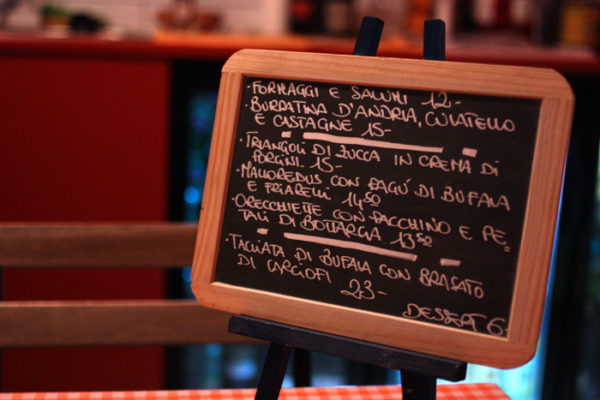 · FORMAGGI E SALUMI 12-
· BURRATINA D'ANDRIA, CULATELLO
E CASTAGNE 15-
· TRIANGOLI DI ZUCCA IN CREMA DI
PORCINI. 15-
· MALLOREDUS CON RAGÚ DI BUFALA
E FRIARELLI 14 50
· ORECCHIETTE CON PACCHINO E PE-
TALI DI BOTTARGA 13 50
· TAGLIATA DI BUFALA CON BRASATO
DI CARCIOFI 23-
DESSERT 6-